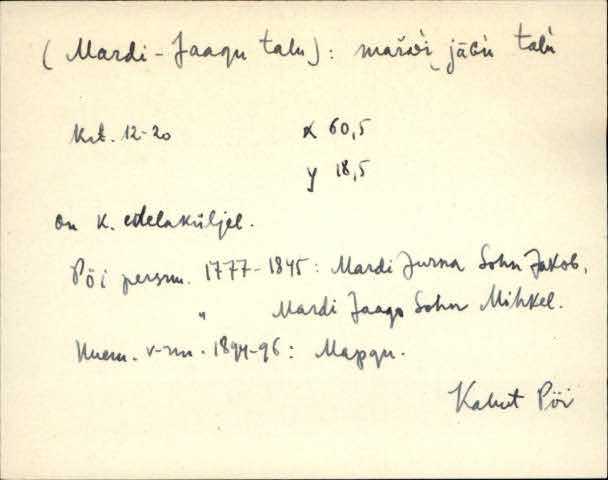 (Mardi-Jaagu talu): mar̆ᴅ̀i jāɢ̀u talu
Krt. 12-20 x 60,5
y 18,5
on K. edelaküljel.
Pöi persrm. 1777-1845: Mardi Jurna Sohn Jakob,
" Mardi Jaago Sohn Mihkel.
v-rm. 1894-96:
Kahut Pöi